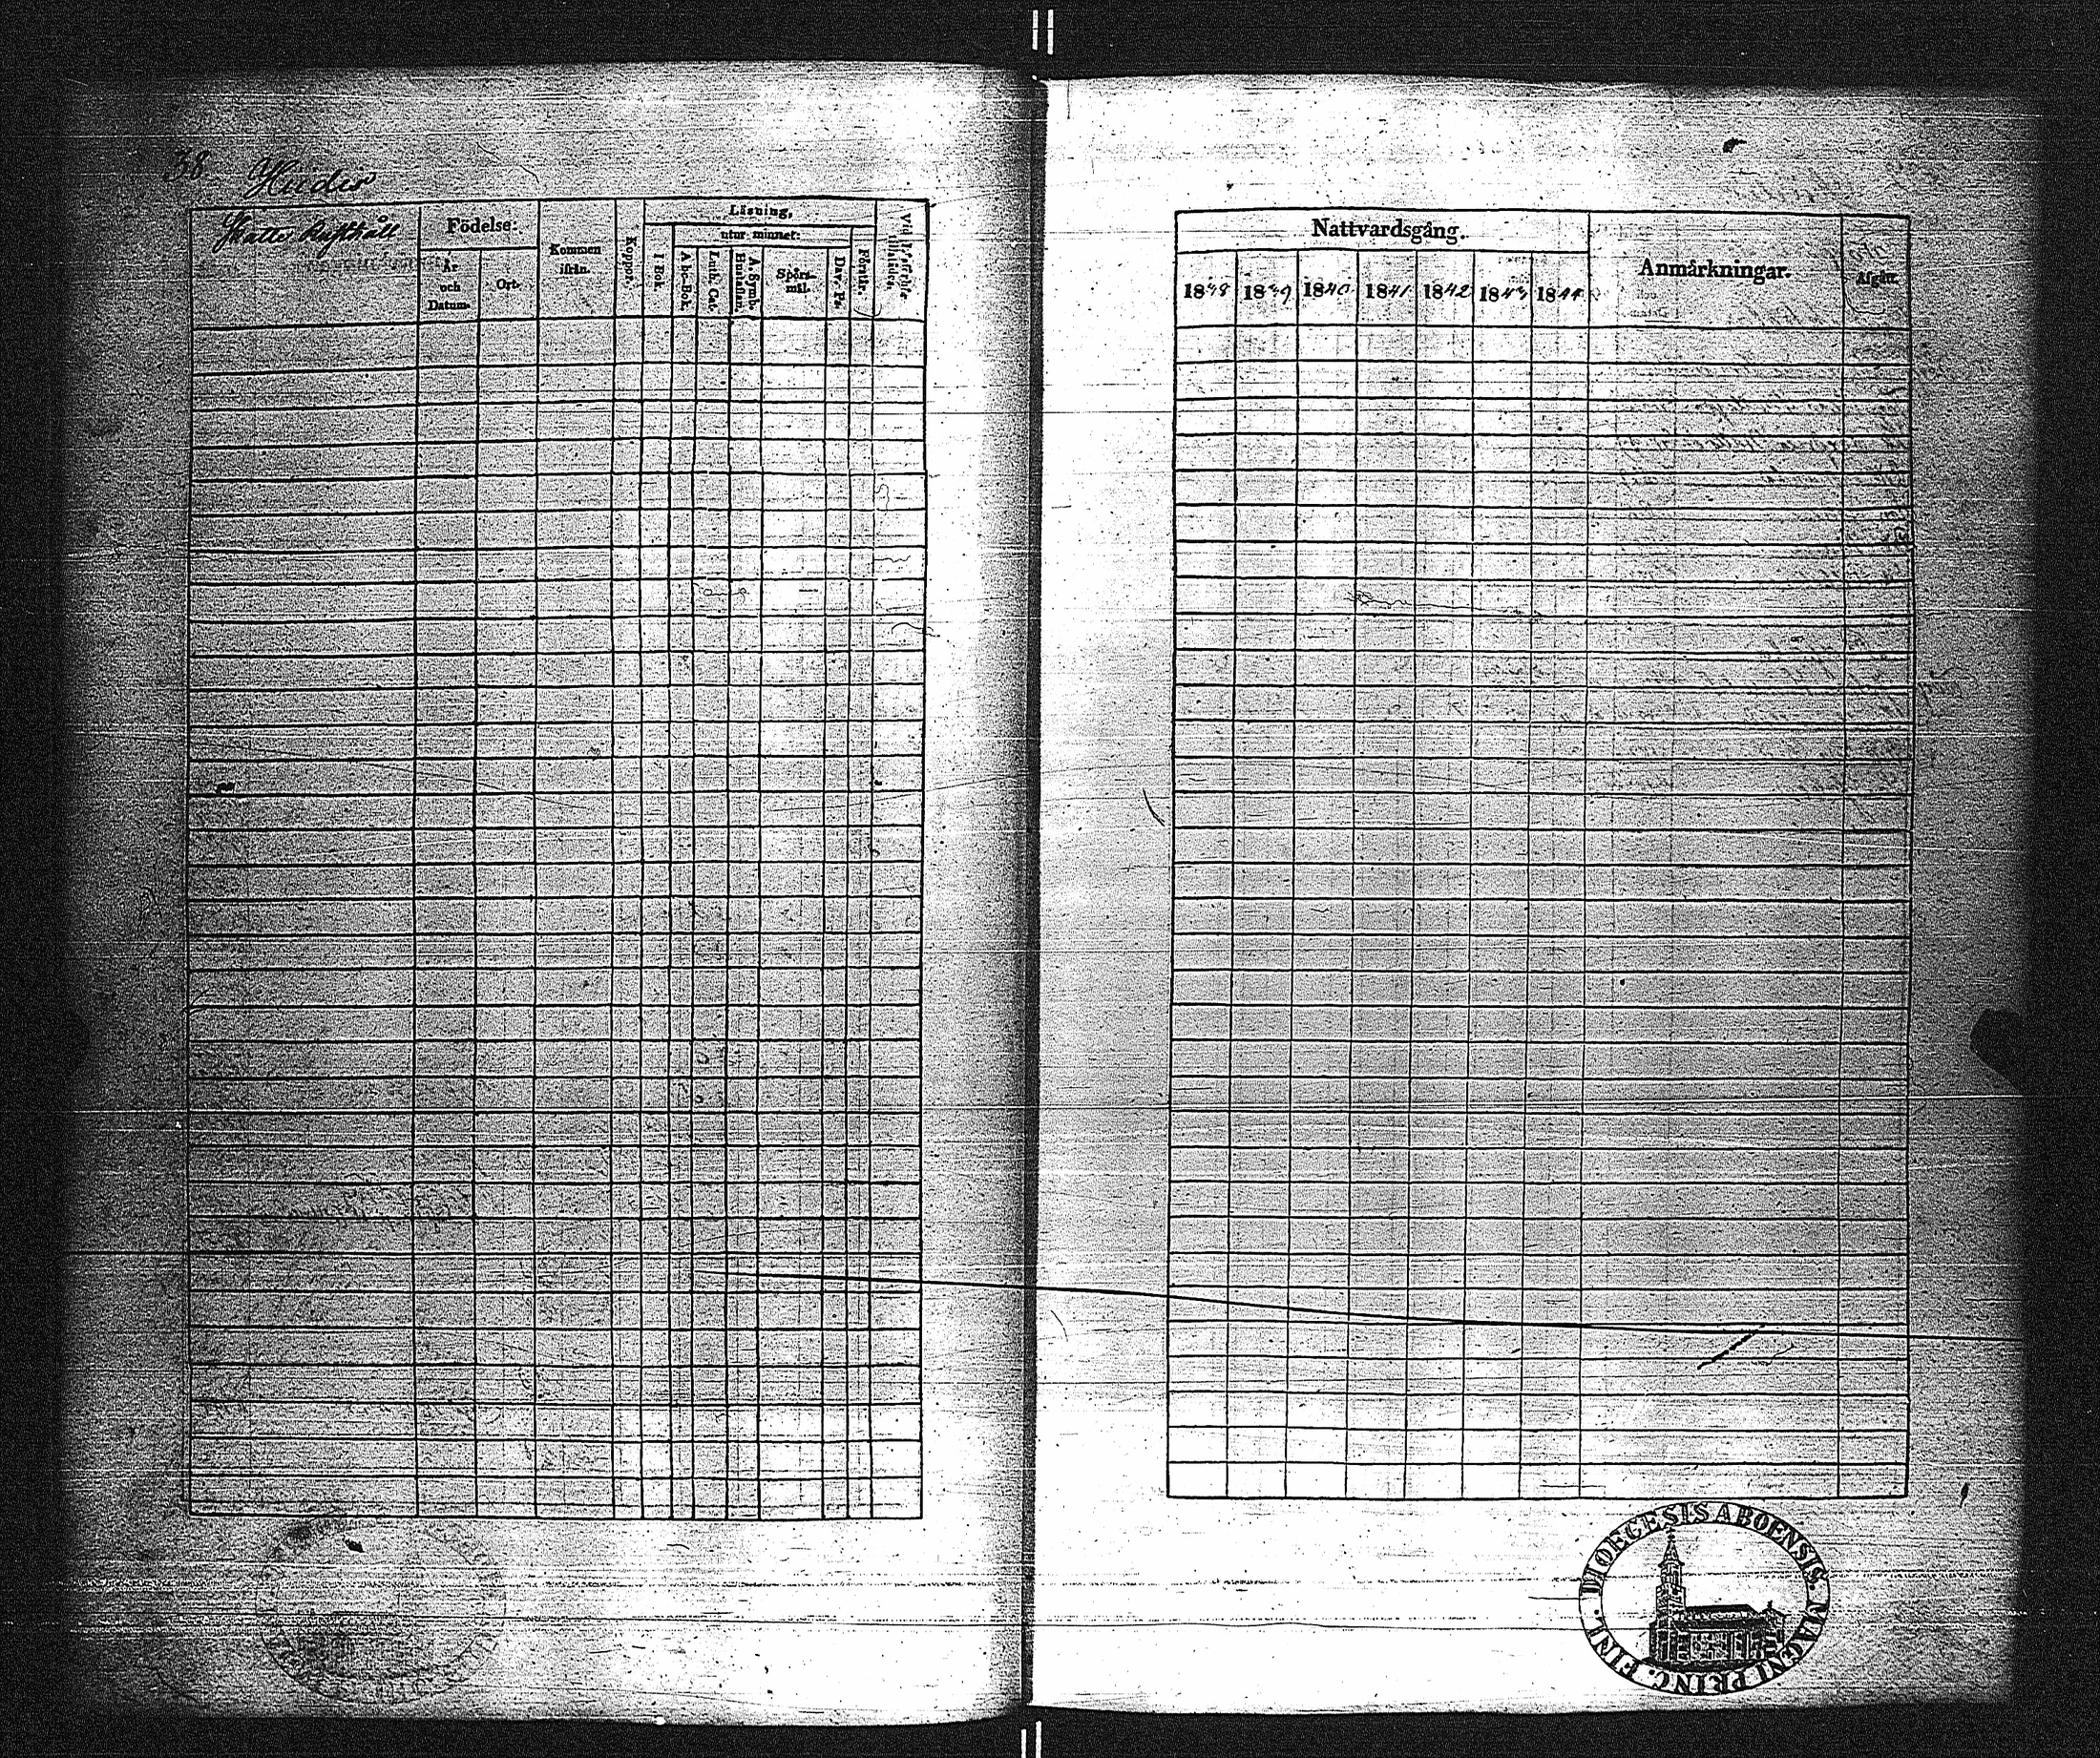 38 Hiidis
Skatte Rusthåll
Födelse:
År
och
Datum.
Ort.
Kommen
ifrån.
Koppor.
Läsning,
utur minnet:
I Bok.
Abc-Bok.
Luth. Cat.
A. Symb.
Hustaflan.
Spörs-
mål.
Dav. Ps.
Förstår.
Nattvardsgång.
1838 1839 1840 1841 1842 1843 1844
Anmärkningar.
Afgått.
DIOECESIS ABOENSIS. MAGNI PRINC. FINL.